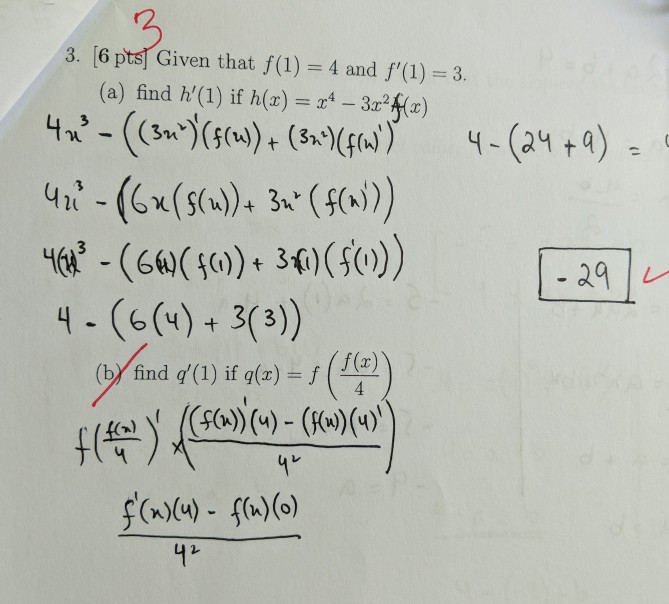 3
3. [6 pts] Given that f(1) = 4 and f′(1) = 3.
(a) find h′(1) if h(x) = x⁴ − 3x²f(x)
4x³ - ((3x²)'(f(x)) + (3x²)(f(x)') 4-(24+9) =
4x³ - (6x(f(x)) + 3x² (f(x)'))
4(1)³ - (6(1)(f(1)) + 3(1)(f'(1)))
-29 ✓
4 - (6(4) + 3(3))
(b) find q′(1) if q(x) = f(f(x)/4)
f(f(x)/4)' × ((f(x))'(4) - (f(x))(4)'/4²)
f'(x)(4) - f(x)(0)
4²